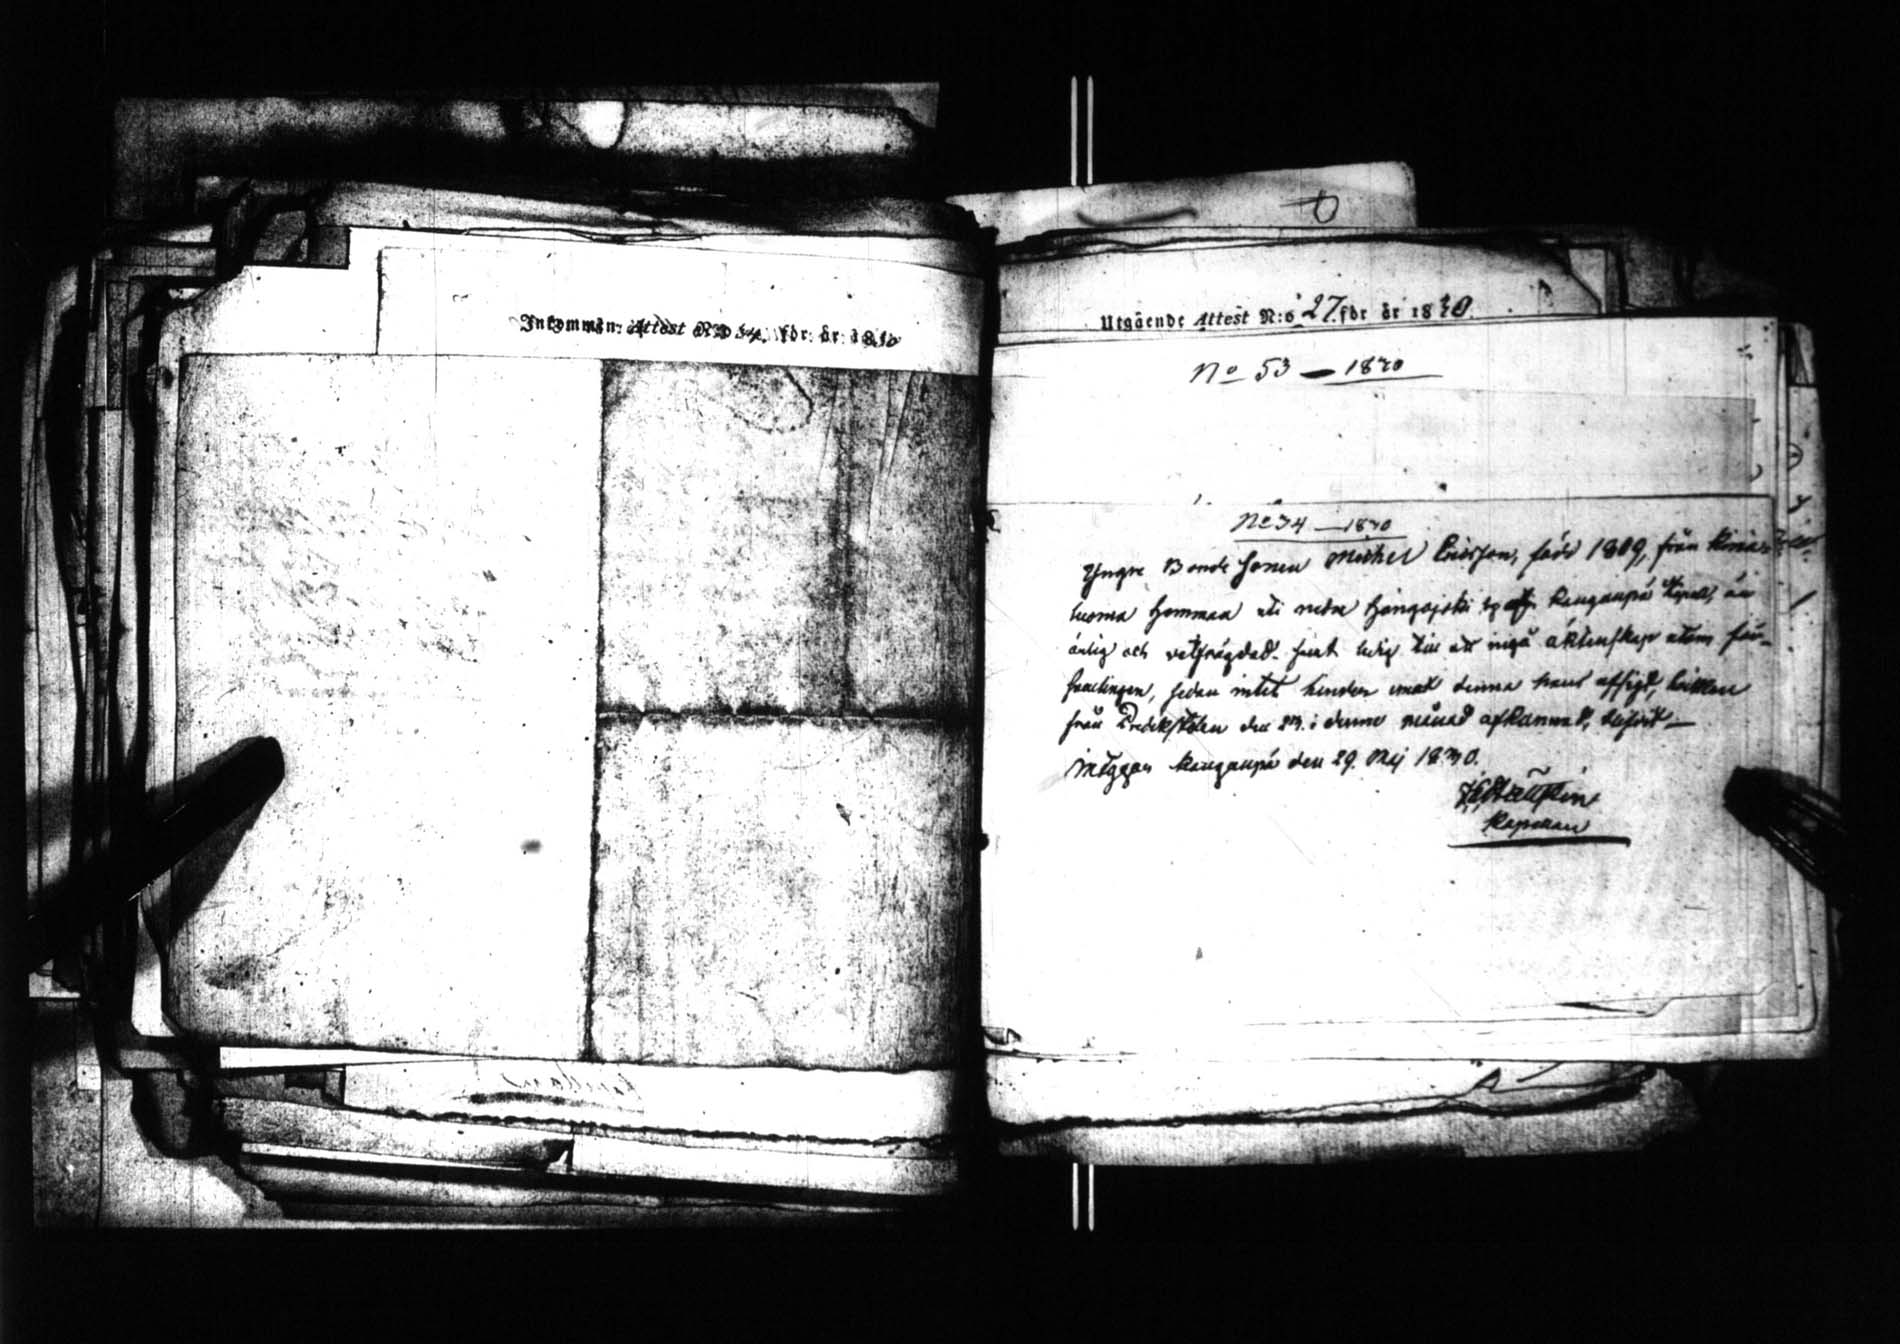 Inkommen: Attest No 34. för år 1830
Utgående Attest N:o 27. för år 1830.
No 53 — 1830
No 34 — 1830
Yngre Bonde Sonen Michel Ericsson, född 1809, från
Hemman uti nedre by af Kauganpä Kapell, är
ärlig och välfrägdad samt ledig till att ingå äktenskap utom för-
samlingen, sedan intet hinder emot denna hans afsigt, hvilken
från Predikstolen den 23. i denne månad afkunnad, blifvit
Kauganpä den 29. Maj 1830.
Kapellan